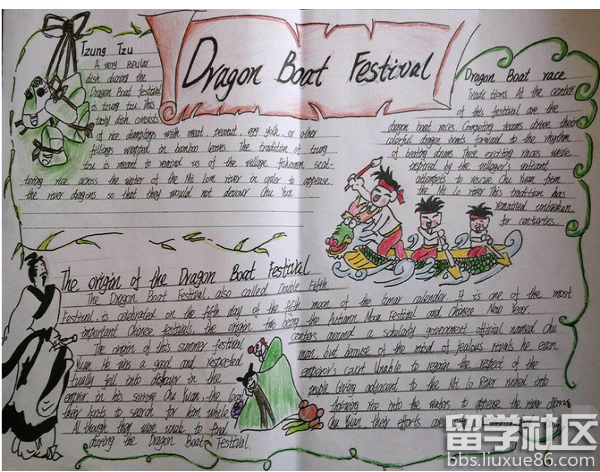 Dragon Boat Festival
Tzung Tzu
A very popular
dish during the
Dragon Boat festival
is tzung tzu. This
tasty dish consists
of rice dumplings with meat, peanut, egg yolk, or other
fillings wrapped in bamboo leaves. The tradition of tzung
tzu is meant to remind us of the village fishermen scat-
tering rice across the water of the Mi Lom river in order to appease
the river dragons so that they would not devour Chu Yun
Dragon Boat race
Traditions At the center
of this festival are the
dragon boat races. Competing teams drive their
colorful dragon boats forward to the rhythm
of beating drums These exciting races were
inspired by the villager's valiant
attempts to rescue Chu Yuan from
the Mi Lo river This tradition has
remained unbroken
for centuries.
The origin of the Dragon Boat Festival
The Dragon Boat Festival also called Double Fifth
Festival is celebrated on the fifth day of the fifth moon of the lunar calendar. It is one of the most
important Chinese festivals, the other two being the Autumn Moon Festival and Chinese New Year.
The origin of this summer festival centers around a scholarly government official named Chu
Yuan. He was a good and respected man, but because of the misdeeds of jealous rivals he
fell into disfavor in the emperor's court. Unable to regain the respect of the
emperor in his sorrow Chu Yuan, the local people living adjacent to the Mi Lo River rushed into
their boats to search for him while throwing rice into the waters to appease the river dragons
Although they were unable to find Chu Yuan, their efforts are
during the Dragon Boat Festival.
留学社区
bbs.liuxue86.com